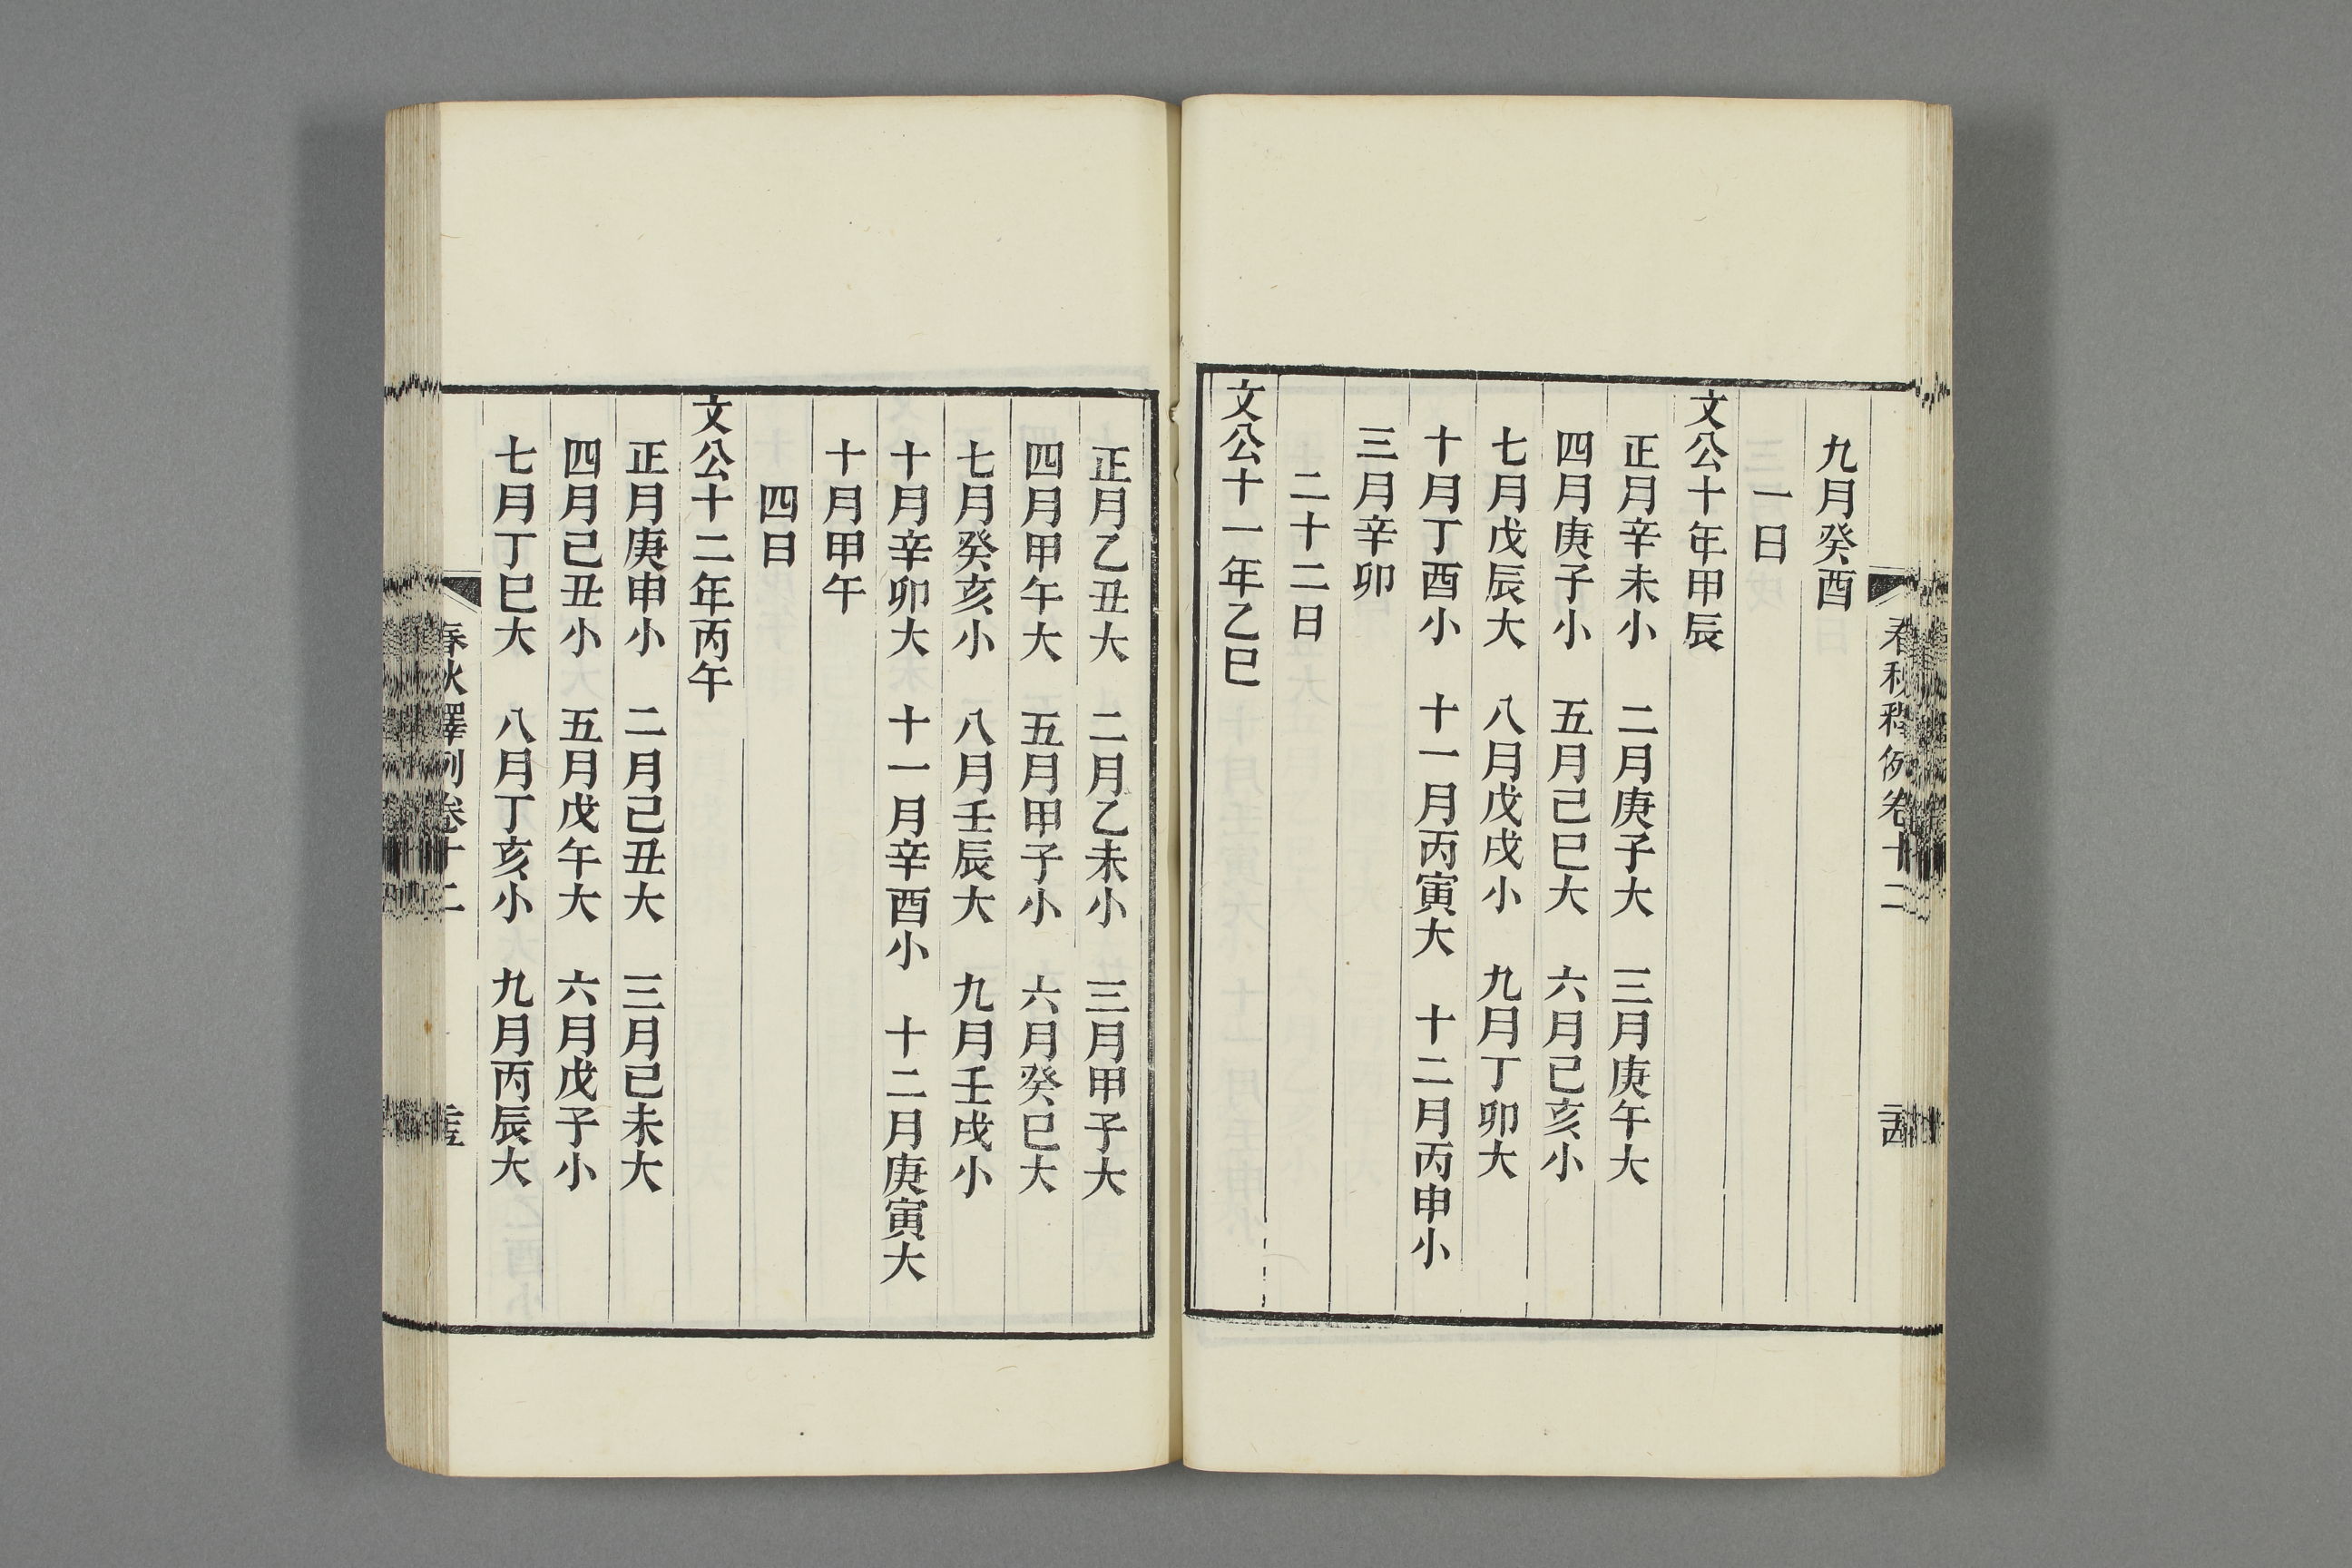 春秋釋例卷十二
九月癸酉
一日
文公十年甲辰
正月辛未小　二月庚子大　三月庚午大
四月庚子小　五月己巳大　六月己亥小
七月戊辰大　八月戊戌小　九月丁卯大
十月丁酉小　十一月丙寅大　十二月丙申小
三月辛卯
二十二日
文公十一年乙巳
正月乙丑大　二月乙未小　三月甲子大
四月甲午大　五月甲子小　六月癸巳大
七月癸亥小　八月壬辰大　九月壬戌小
十月辛卯大　十一月辛酉小　十二月庚寅大
十月甲午
四日
文公十二年丙午
正月庚申小　二月己丑大　三月己未大
四月己丑小　五月戊午大　六月戊子小
七月丁巳大　八月丁亥小　九月丙辰大
春秋釋例卷十二